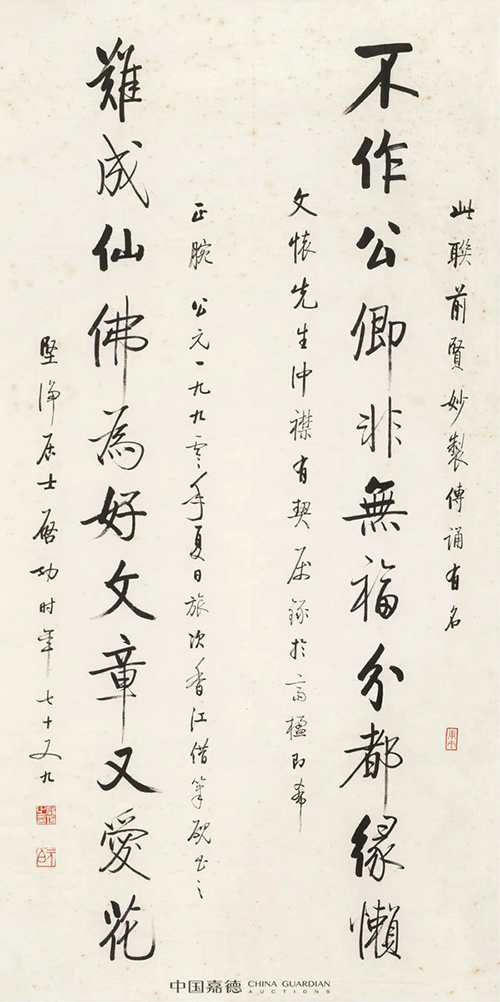 此聯前賢妙製傳誦有名
不作公卿非無福分都緣懶
文懷先生沖襟有契屬錄於高楹即希
正腕 公元一九九零年夏日旅次香江借筆硯書之
難成仙佛為好文章又愛花
堅淨居士啟功时年七十又九
中国嘉德 CHINA GUARDIAN AUCTIONS